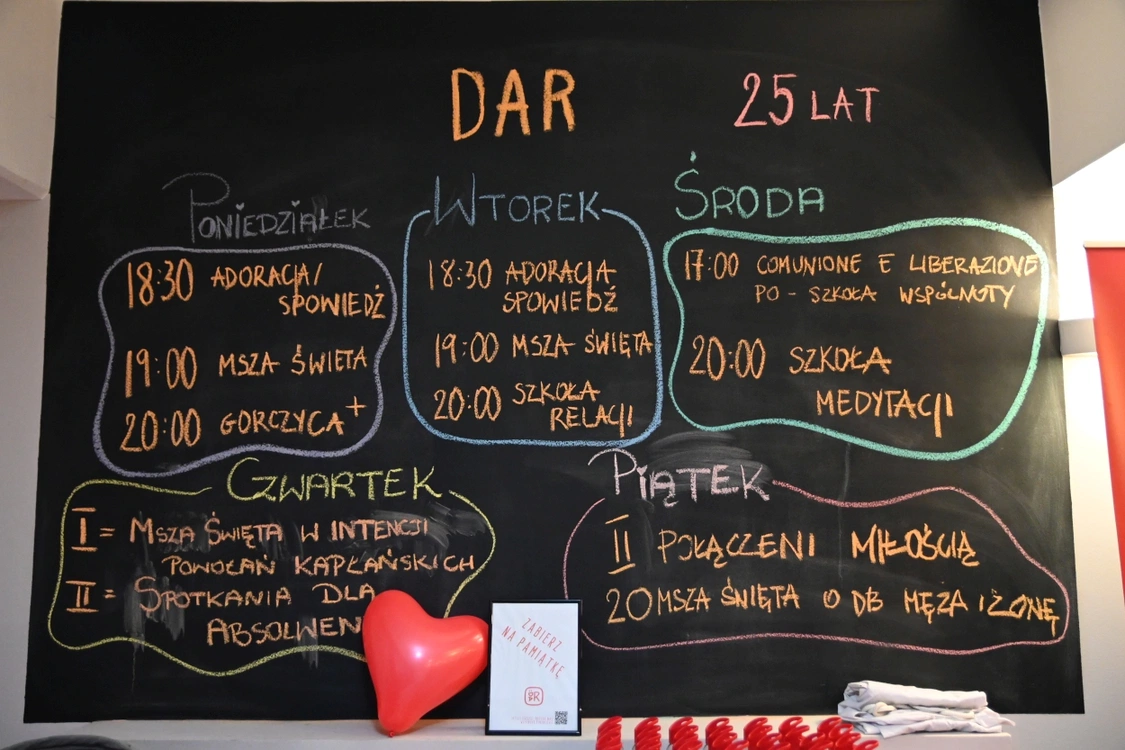 DAR
25 LAT
PONIEDZIAŁEK
18:30 ADORACJA/
SPOWIEDŹ
19:00 MSZA ŚWIĘTA
20:00 GORCZYCA+
WTOREK
18:30 ADORACJA
SPOWIEDŹ
19:00 MSZA ŚWIĘTA
20:00 SZKOŁA
RELACJI
ŚRODA
17:00 COMUNIONE E LIBERAZIONE
PO - SZKOŁA WSPÓLNOTY
20:00 SZKOŁA
MEDYTACJI
CZWARTEK
I = MSZA ŚWIĘTA W INTENCJI
POWOŁAN KAPŁAŃSKICH
II = SPOTKANIA DLA
ABSOLWEN
PIĄTEK
II POŁĄCZENI MIŁOŚCIĄ
20 MSZA ŚWIĘTA O DB MĘŻA I ŻONĘ
ZABIERZ
NA PAMIĄTKĘ